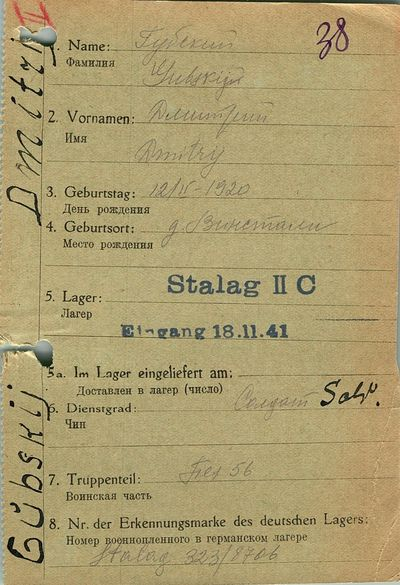 II
38
1. Name: Губский
Фамилия
Gubskij
2. Vornamen: Дмитрий
Имя
Dmitry
3. Geburtstag: 12/IV-1920
День рождения
4. Geburtsort: д.
Место рождения
Stalag II C
5. Lager:
Лагер
Eingang 18.11.41
5a. Im Lager eingeliefert am:
Доставлен в лагер (число)
6. Dienstgrad: Солдат
Чин
7. Truppenteil: 56
Воинская часть
8. Nr. der Erkennungsmarke des deutschen Lagers:
Номер военнопленного в германском лагере
Stalag 323/8706
Gubskij Dmitrij